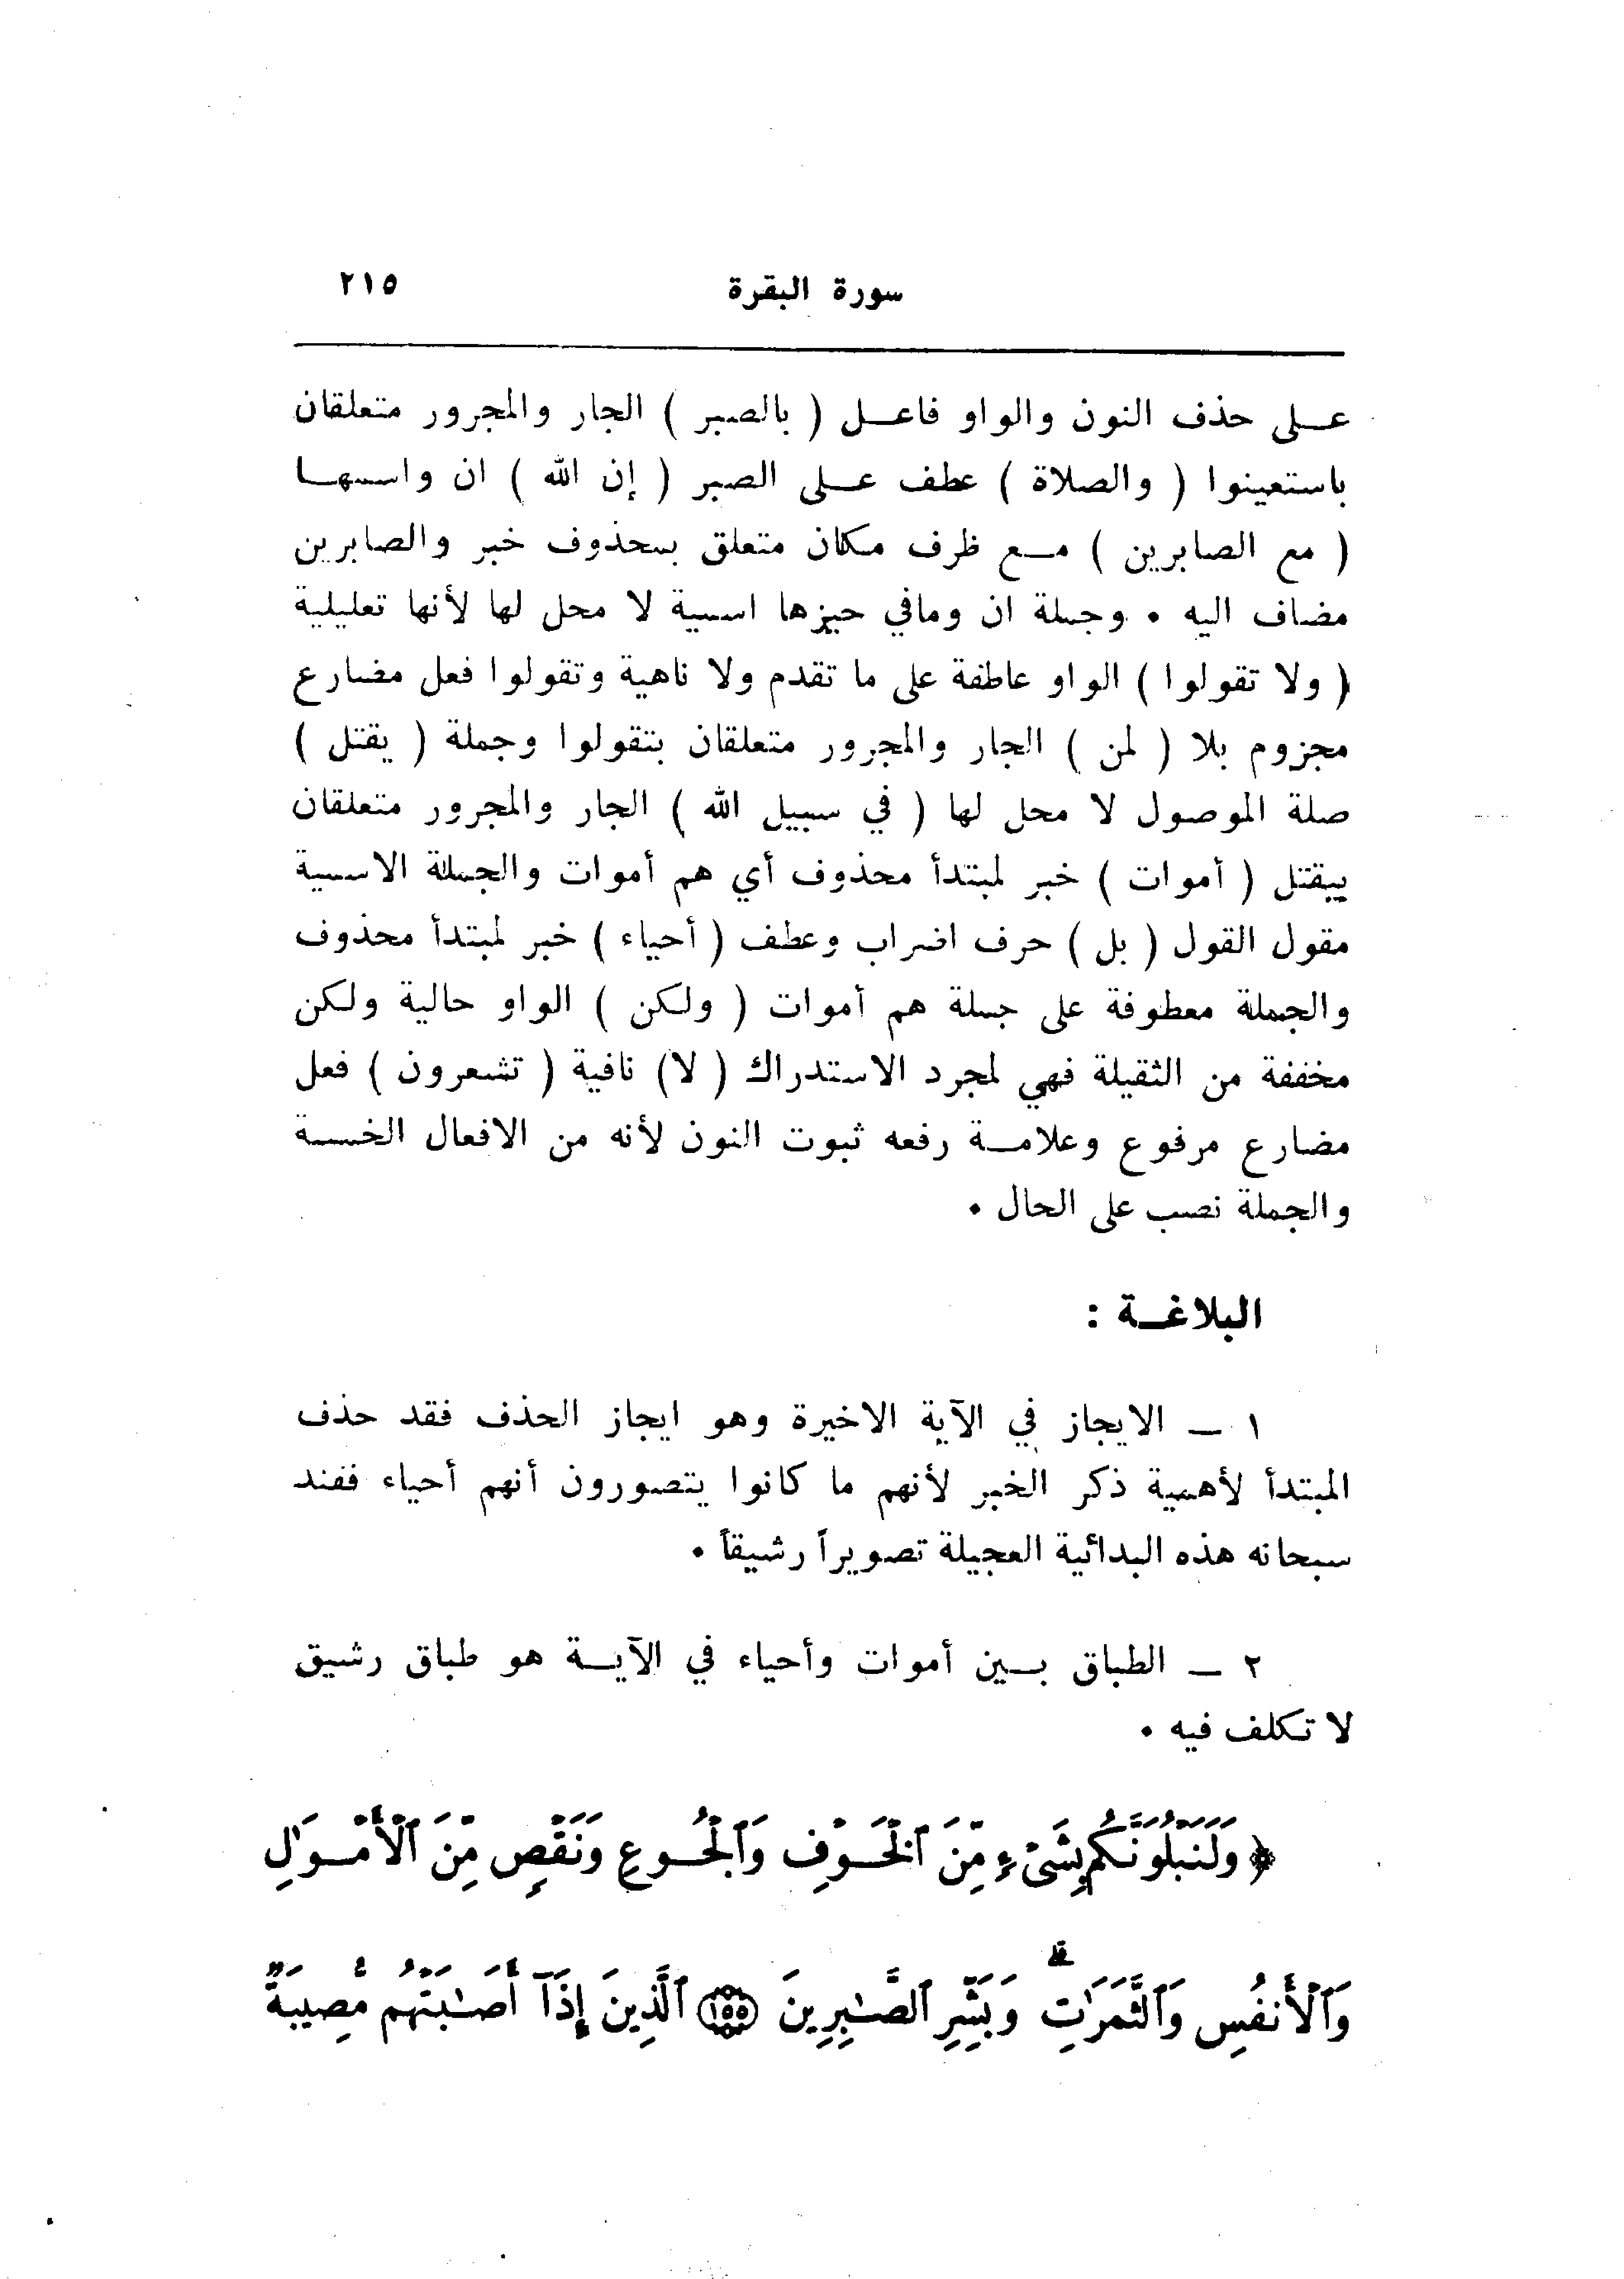 سورة البقرة ٢١٥
علـى حذف النون والواو فاعـل ( بالصبر ) الجار والمجرور متعلقان
باستعينوا ( والصلاة ) عطف علـى الصبر ( إن الله ) ان واسمهـا
( مع الصابرين ) مـع ظرف مكان متعلق بمحذوف خبر والصابرين
مضاف اليه . وجملة ان ومافي حيزها اسمية لا محل لها لأنها تعليلية
( ولا تقولوا ) الواو عاطفة على ما تقدم ولا ناهية وتقولوا فعل مضارع
مجزوم بلا ( لمن ) الجار والمجرور متعلقان بتقولوا وجملة ( يقتل )
صلة الموصول لا محل لها ( في سبيل الله ) الجار والمجرور متعلقان
بيقتل ( أموات ) خبر لمبتدأ محذوف أي هم أموات والجملة الاسمية
مقول القول ( بل ) حرف اضراب وعطف ( أحياء ) خبر لمبتدأ محذوف
والجملة معطوفة على جملة هم أموات ( ولكن ) الواو حالية ولكن
مخففة من الثقيلة فهي لمجرد الاستدراك ( لا ) نافية ( تشعرون ) فعل
مضارع مرفوع وعلامـة رفعه ثبوت النون لأنه من الافعال الخمسة
والجملة نصب على الحال .
البلاغـة :
١ ــ الايجاز في الآية الاخيرة وهو ايجاز الحذف فقد حذف
المبتدأ لأهمية ذكر الخبر لأنهم ما كانوا يتصورون أنهم أحياء ففند
سبحانه هذه البدائية العجيلة تصويراً رشيقاً .
٢ ــ الطباق بـين أموات وأحياء في الآيـة هو طباق رشيق
لا تكلف فيه .
﴿ وَلَنَبْلُوَنَّكُم بِشَىْءٍ مِّنَ ٱلْخَـوْفِ وَٱلْجُـوعِ وَنَقْصٍ مِّنَ ٱلْأَمْـوَٰلِ
وَٱلْأَنفُسِ وَٱلثَّمَرَٰتِ ۗ وَبَشِّرِ ٱلصَّـٰبِرِينَ ﴿١٥٥﴾ ٱلَّذِينَ إِذَآ أَصَـٰبَتْهُم مُّصِيبَةٌ